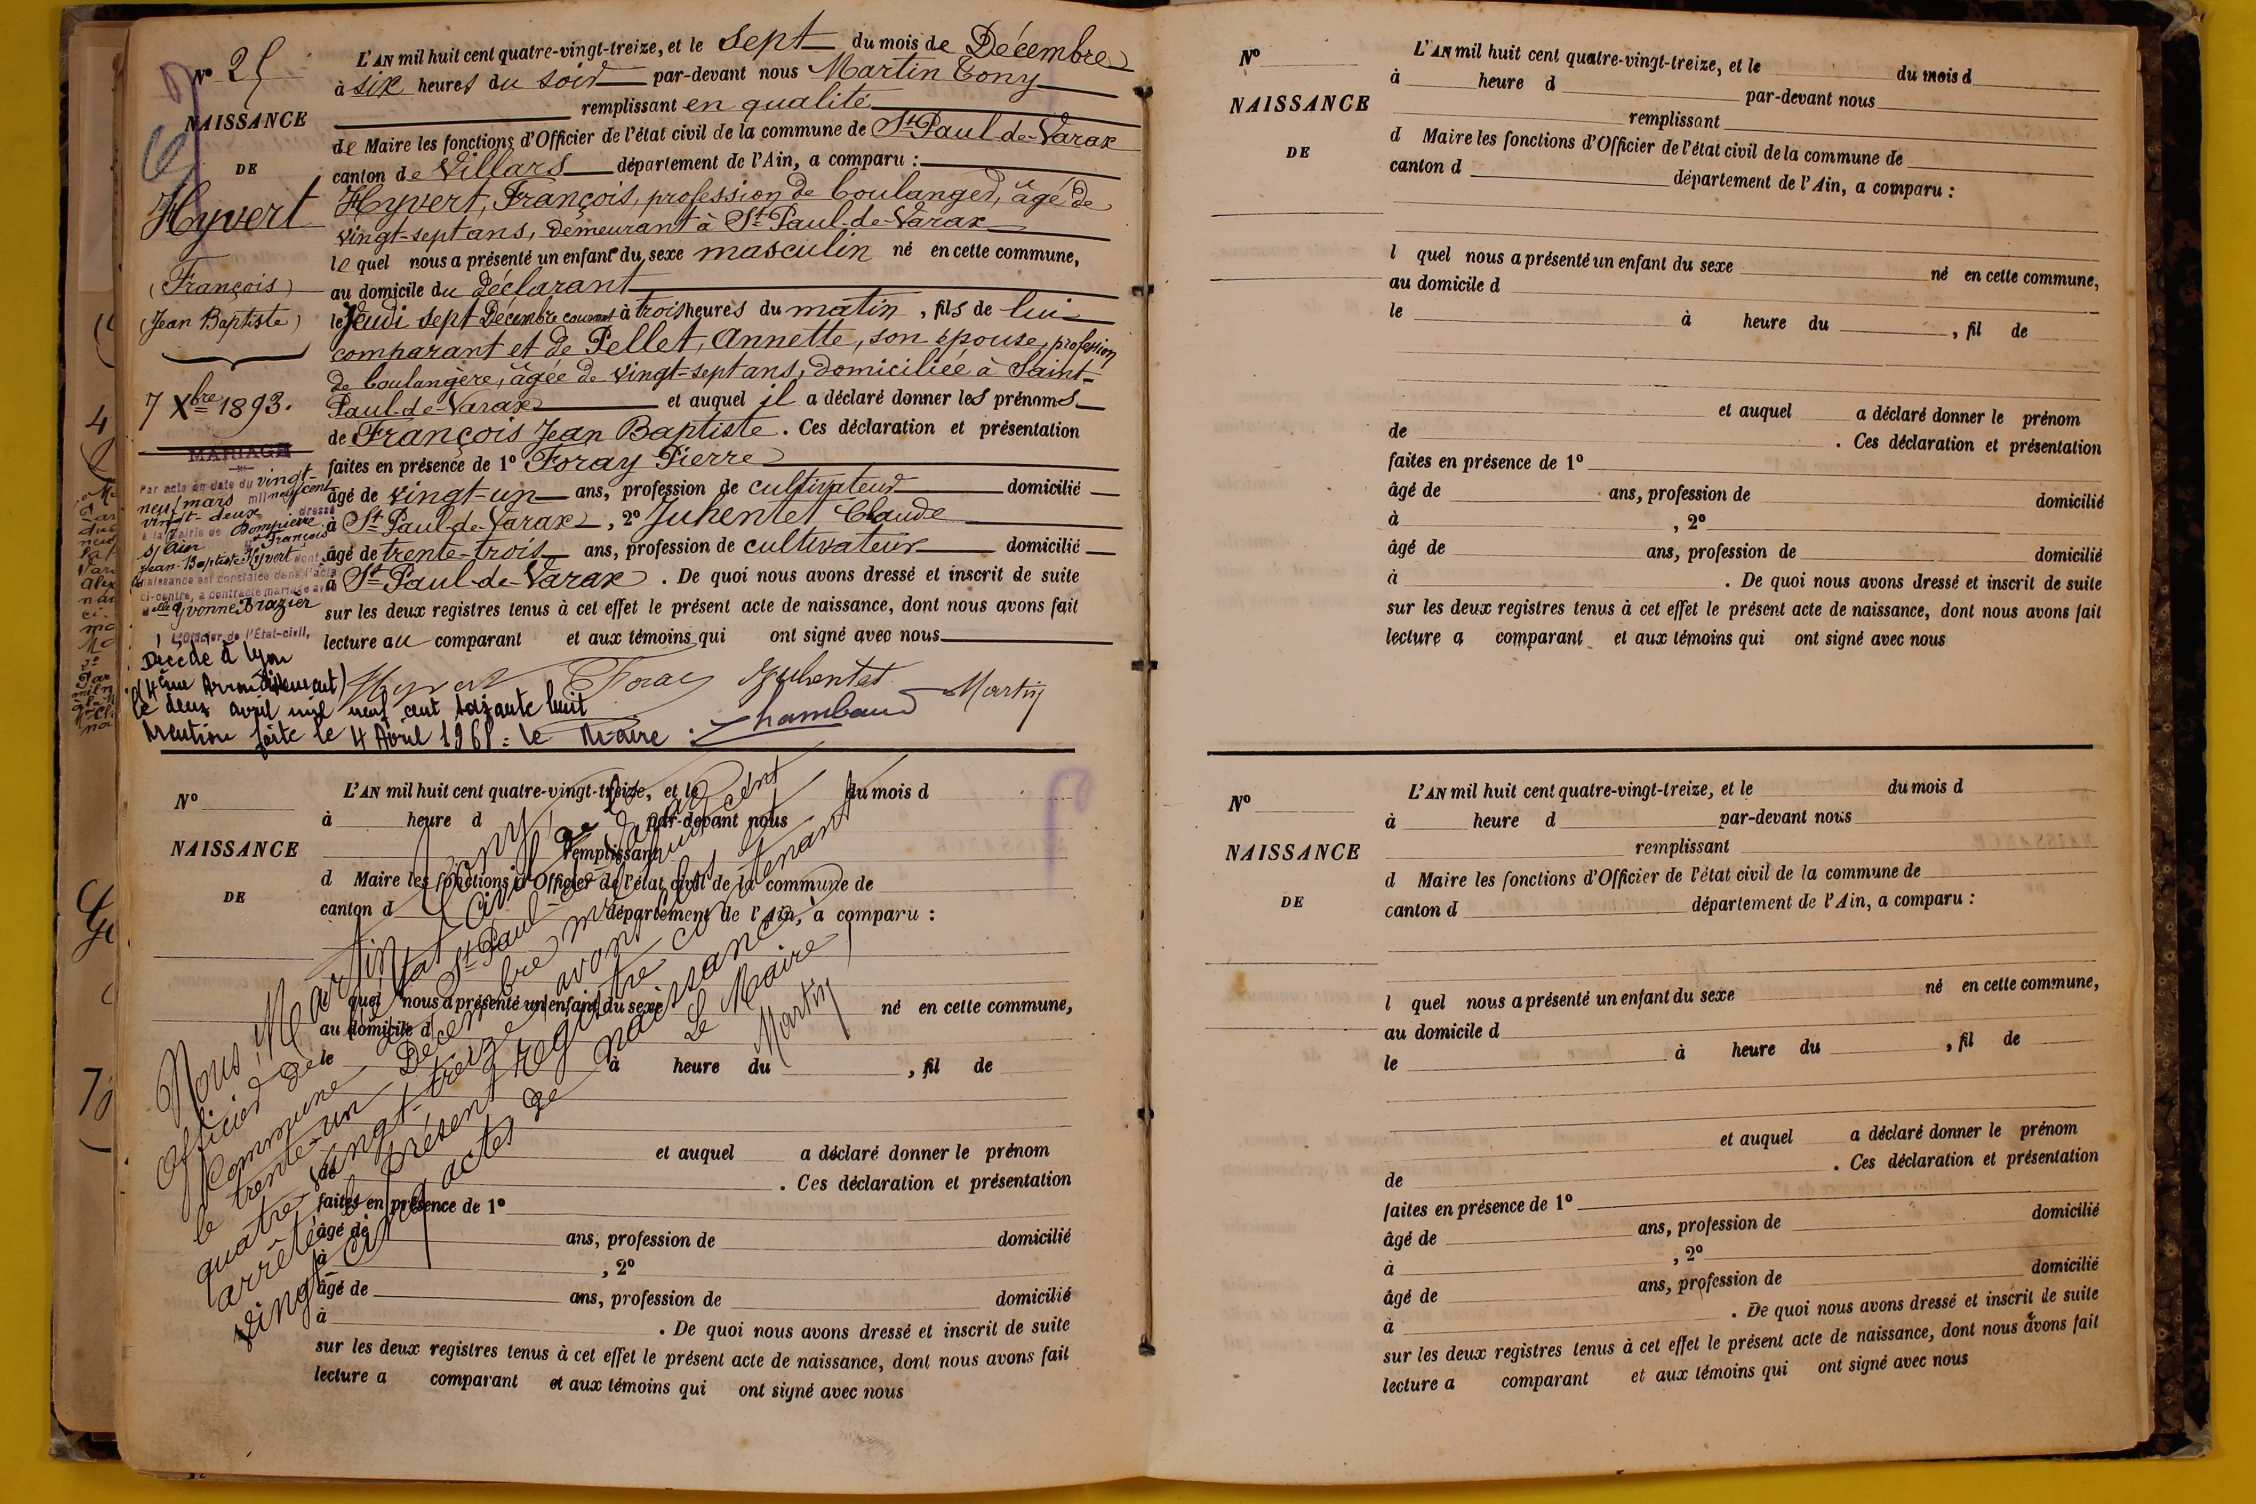 Nº 25
NAISSANCE
DE
Hyvert
(François)
(Jean Baptiste)
7 Xbre 1893.
L'AN mil huit cent quatre-vingt-treize, et le sept du mois de Décembre
à six heures du soir par-devant nous Martin Tony
remplissant en qualité
de Maire les fonctions d'Officier de l'état civil de la commune de St Paul-de-Varax
canton de Villars département de l'Ain, a comparu :
Hyvert, François, profession de boulanger, âgé de
vingt-sept ans, demeurant à St Paul-de-Varax
lequel nous a présenté un enfant du sexe masculin né en cette commune,
au domicile du déclarant
le Jeudi sept Décembre courant à trois heures du matin, fils de lui
comparant et de Pellet, Annette, son épouse, profession
de boulangère, âgée de vingt-sept ans, domiciliée à Saint-
Paul-de-Varax et auquel il a déclaré donner les prénoms
de François Jean Baptiste. Ces déclaration et présentation
faites en présence de 1º Foray Pierre
âgé de vingt-un ans, profession de cultivateur domicilié
à St Paul-de-Varax, 2º Juhentet Claude
âgé de trente-trois ans, profession de cultivateur domicilié
à St Paul-de-Varax. De quoi nous avons dressé et inscrit de suite
sur les deux registres tenus à cet effet le présent acte de naissance, dont nous avons fait
lecture au comparant et aux témoins qui ont signé avec nous
Hyvert Foray Juhentet Martin
MARIAGE
Par acte en date du vingt-
neuf mars mil neuf cent
vingt-deux dressé
à la Mairie de Dompierre
s/ Ain Mr François
Jean-Baptiste Hyvert dont
la naissance est constatée dans l'acte
ci-contre, a contracté mariage avec
Melle Yvonne Brazier
L'Officier de l'État-civil,
Décédé à Lyon
(4ème Arrondissement)
le deux avril mil neuf cent soixante huit
Mention faite le 4 Avril 1968 : le Maire.
Chambaud
Nº
NAISSANCE
DE
L'AN mil huit cent quatre-vingt-treize, et le du mois d
à heure d par-devant nous
remplissant
d Maire les fonctions d'Officier de l'état civil de la commune de
canton d département de l'Ain, a comparu :
l quel nous a présenté un enfant du sexe né en cette commune,
au domicile d
le à heure du , fil de
et auquel a déclaré donner le prénom
de . Ces déclaration et présentation
faites en présence de 1º
âgé de ans, profession de domicilié
à , 2º
âgé de ans, profession de domicilié
à . De quoi nous avons dressé et inscrit de suite
sur les deux registres tenus à cet effet le présent acte de naissance, dont nous avons fait
lecture a comparant et aux témoins qui ont signé avec nous
Nous, Martin Tony,
Officier de l'état civil de la
Commune de St Paul-de-Varax
le trente-un Décembre mil huit cent
quatre-vingt-treize, avons clos et
arrêté le présent registre contenant
vingt-cinq actes de naissance
Le Maire
Martin
Nº
NAISSANCE
DE
L'AN mil huit cent quatre-vingt-treize, et le du mois d
à heure d par-devant nous
remplissant
d Maire les fonctions d'Officier de l'état civil de la commune de
canton d département de l'Ain, a comparu :
l quel nous a présenté un enfant du sexe né en cette commune,
au domicile d
le à heure du , fil de
et auquel a déclaré donner le prénom
de . Ces déclaration et présentation
faites en présence de 1º
âgé de ans, profession de domicilié
à , 2º
âgé de ans, profession de domicilié
à . De quoi nous avons dressé et inscrit de suite
sur les deux registres tenus à cet effet le présent acte de naissance, dont nous avons fait
lecture a comparant et aux témoins qui ont signé avec nous
Nº
NAISSANCE
DE
L'AN mil huit cent quatre-vingt-treize, et le du mois d
à heure d par-devant nous
remplissant
d Maire les fonctions d'Officier de l'état civil de la commune de
canton d département de l'Ain, a comparu :
l quel nous a présenté un enfant du sexe né en cette commune,
au domicile d
le à heure du , fil de
et auquel a déclaré donner le prénom
de . Ces déclaration et présentation
faites en présence de 1º
âgé de ans, profession de domicilié
à , 2º
âgé de ans, profession de domicilié
à . De quoi nous avons dressé et inscrit de suite
sur les deux registres tenus à cet effet le présent acte de naissance, dont nous avons fait
lecture a comparant et aux témoins qui ont signé avec nous